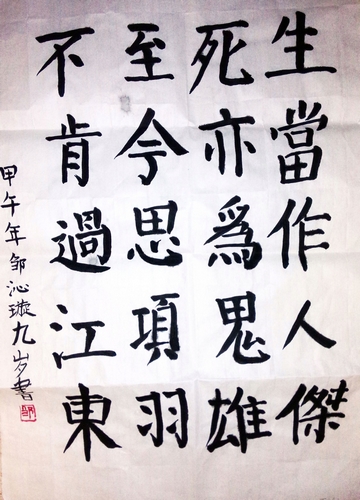 生當作人傑
死亦為鬼雄
至今思項羽
不肯過江東
甲午年邹沁璇九岁書